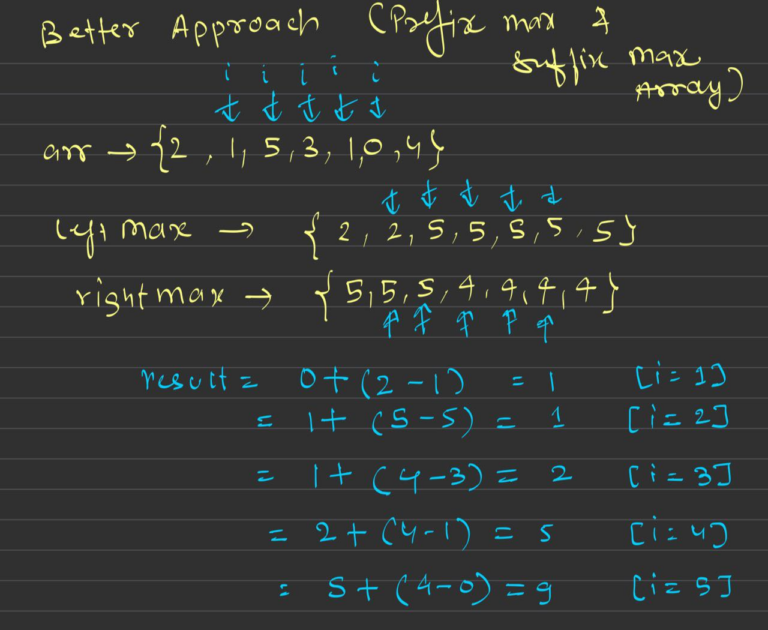 Better Approach (Prefix max &
suffix max
Array)
i i i i i
↓ ↓ ↓ ↓ ↓
arr → {2, 1, 5, 3, 1, 0, 4}
↓ ↓ ↓ ↓ ↓
left max → {2, 2, 5, 5, 5, 5, 5}
right max → {5, 5, 5, 4, 4, 4, 4}
↑ ↑ ↑ ↑ ↑
result = 0 + (2 - 1) = 1 [i = 1]
= 1 + (5 - 5) = 1 [i = 2]
= 1 + (4 - 3) = 2 [i = 3]
= 2 + (4 - 1) = 5 [i = 4]
= 5 + (4 - 0) = 9 [i = 5]